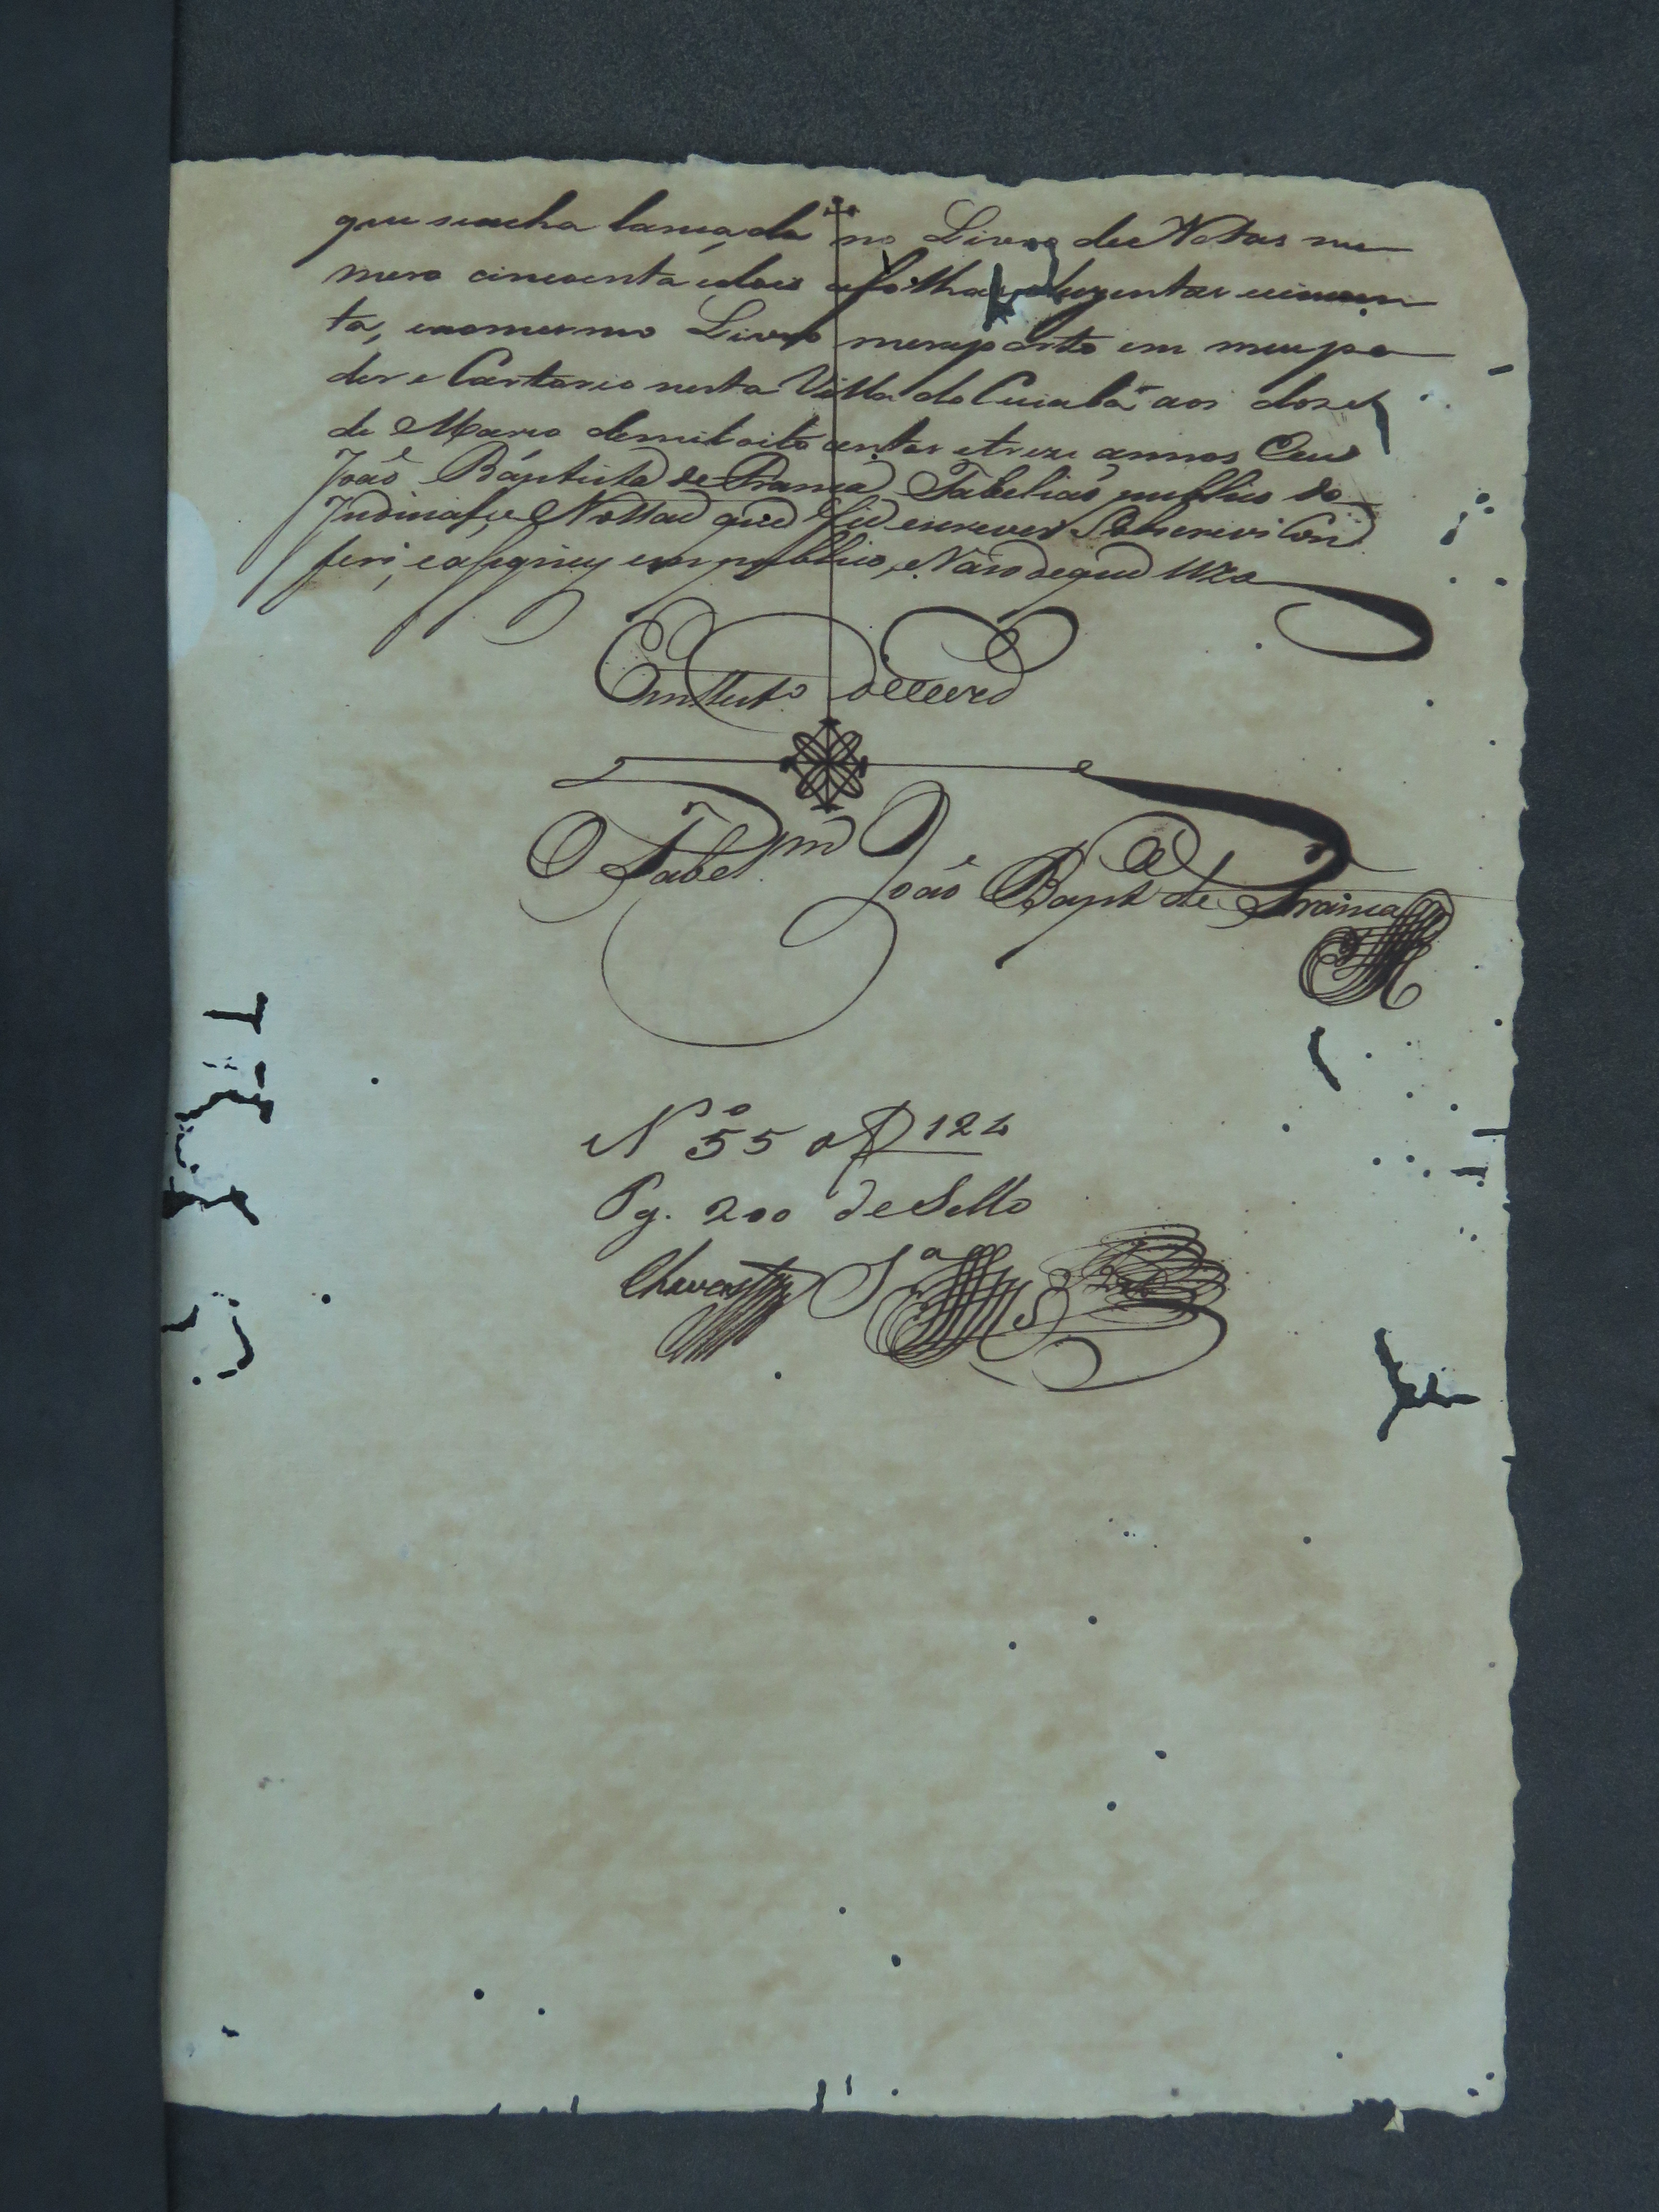 que seacha lançada no Livro de Notas nu
mero cincoenta edois afolhas duzentas ecincoen
ta, eaomesmo Livro mereporto em meupo
der e Cartorio nesta Villa do Cuiabá aos doze
de Março demil oito centos etreze annos Eeu
João Baptista de França Tabeliaõ publico do
Judicial, e Nottas que fiz escrever Sobscrevi Con
feri, easigney em publico, e Razo deque uzo
Em Test.º de verd.
O Tabel.am João Bapt.ª de França
Nº 55 af 124
Pg. 200 de Sello